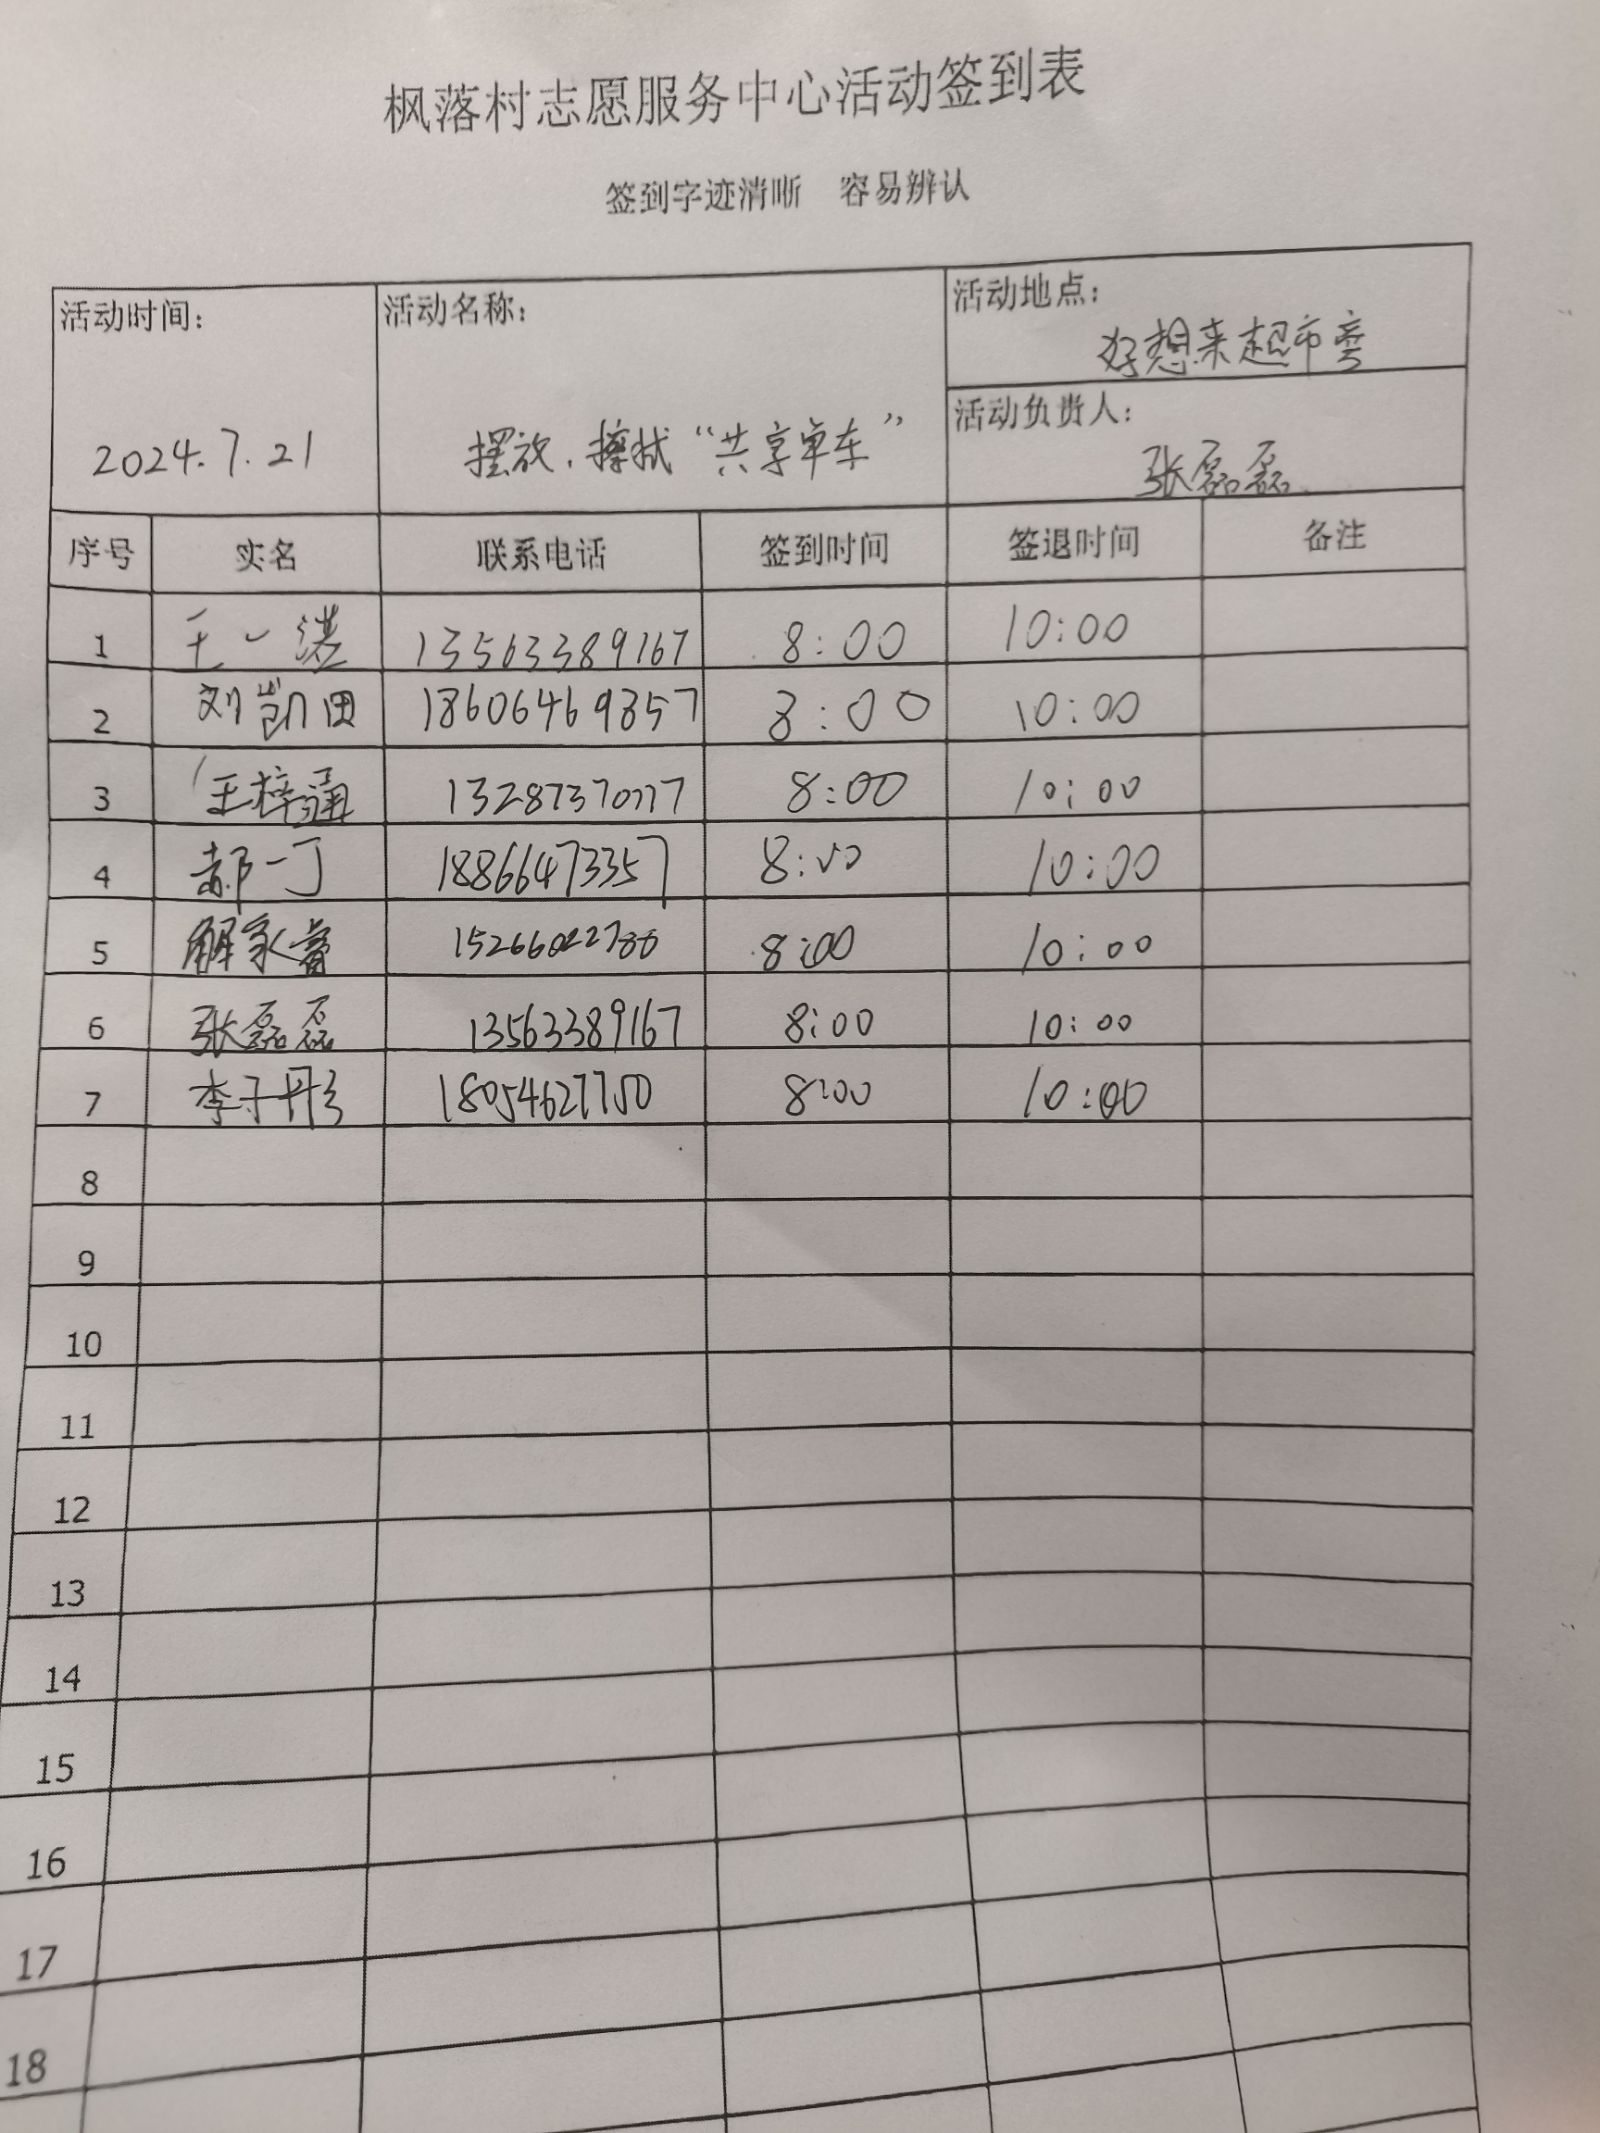 枫落村志愿服务中心活动签到表
签到字迹清晰 容易辨认
活动时间: 2024.7.21
活动名称: 摆放、擦拭“共享单车”
活动地点: 好想来超市旁
活动负责人: 张磊磊
序号 实名 联系电话 签到时间 签退时间 备注
1 王一 13563389167 8:00 10:00
2 刘凯田 18606469857 8:00 10:00
3 王梓涵 13287370777 8:00 10:00
4 郝一丁 18866473357 8:00 10:00
5 解家睿 15266022788 8:00 10:00
6 张磊磊 13563389167 8:00 10:00
7 李子彤 18054627750 8:00 10:00
8
9
10
11
12
13
14
15
16
17
18